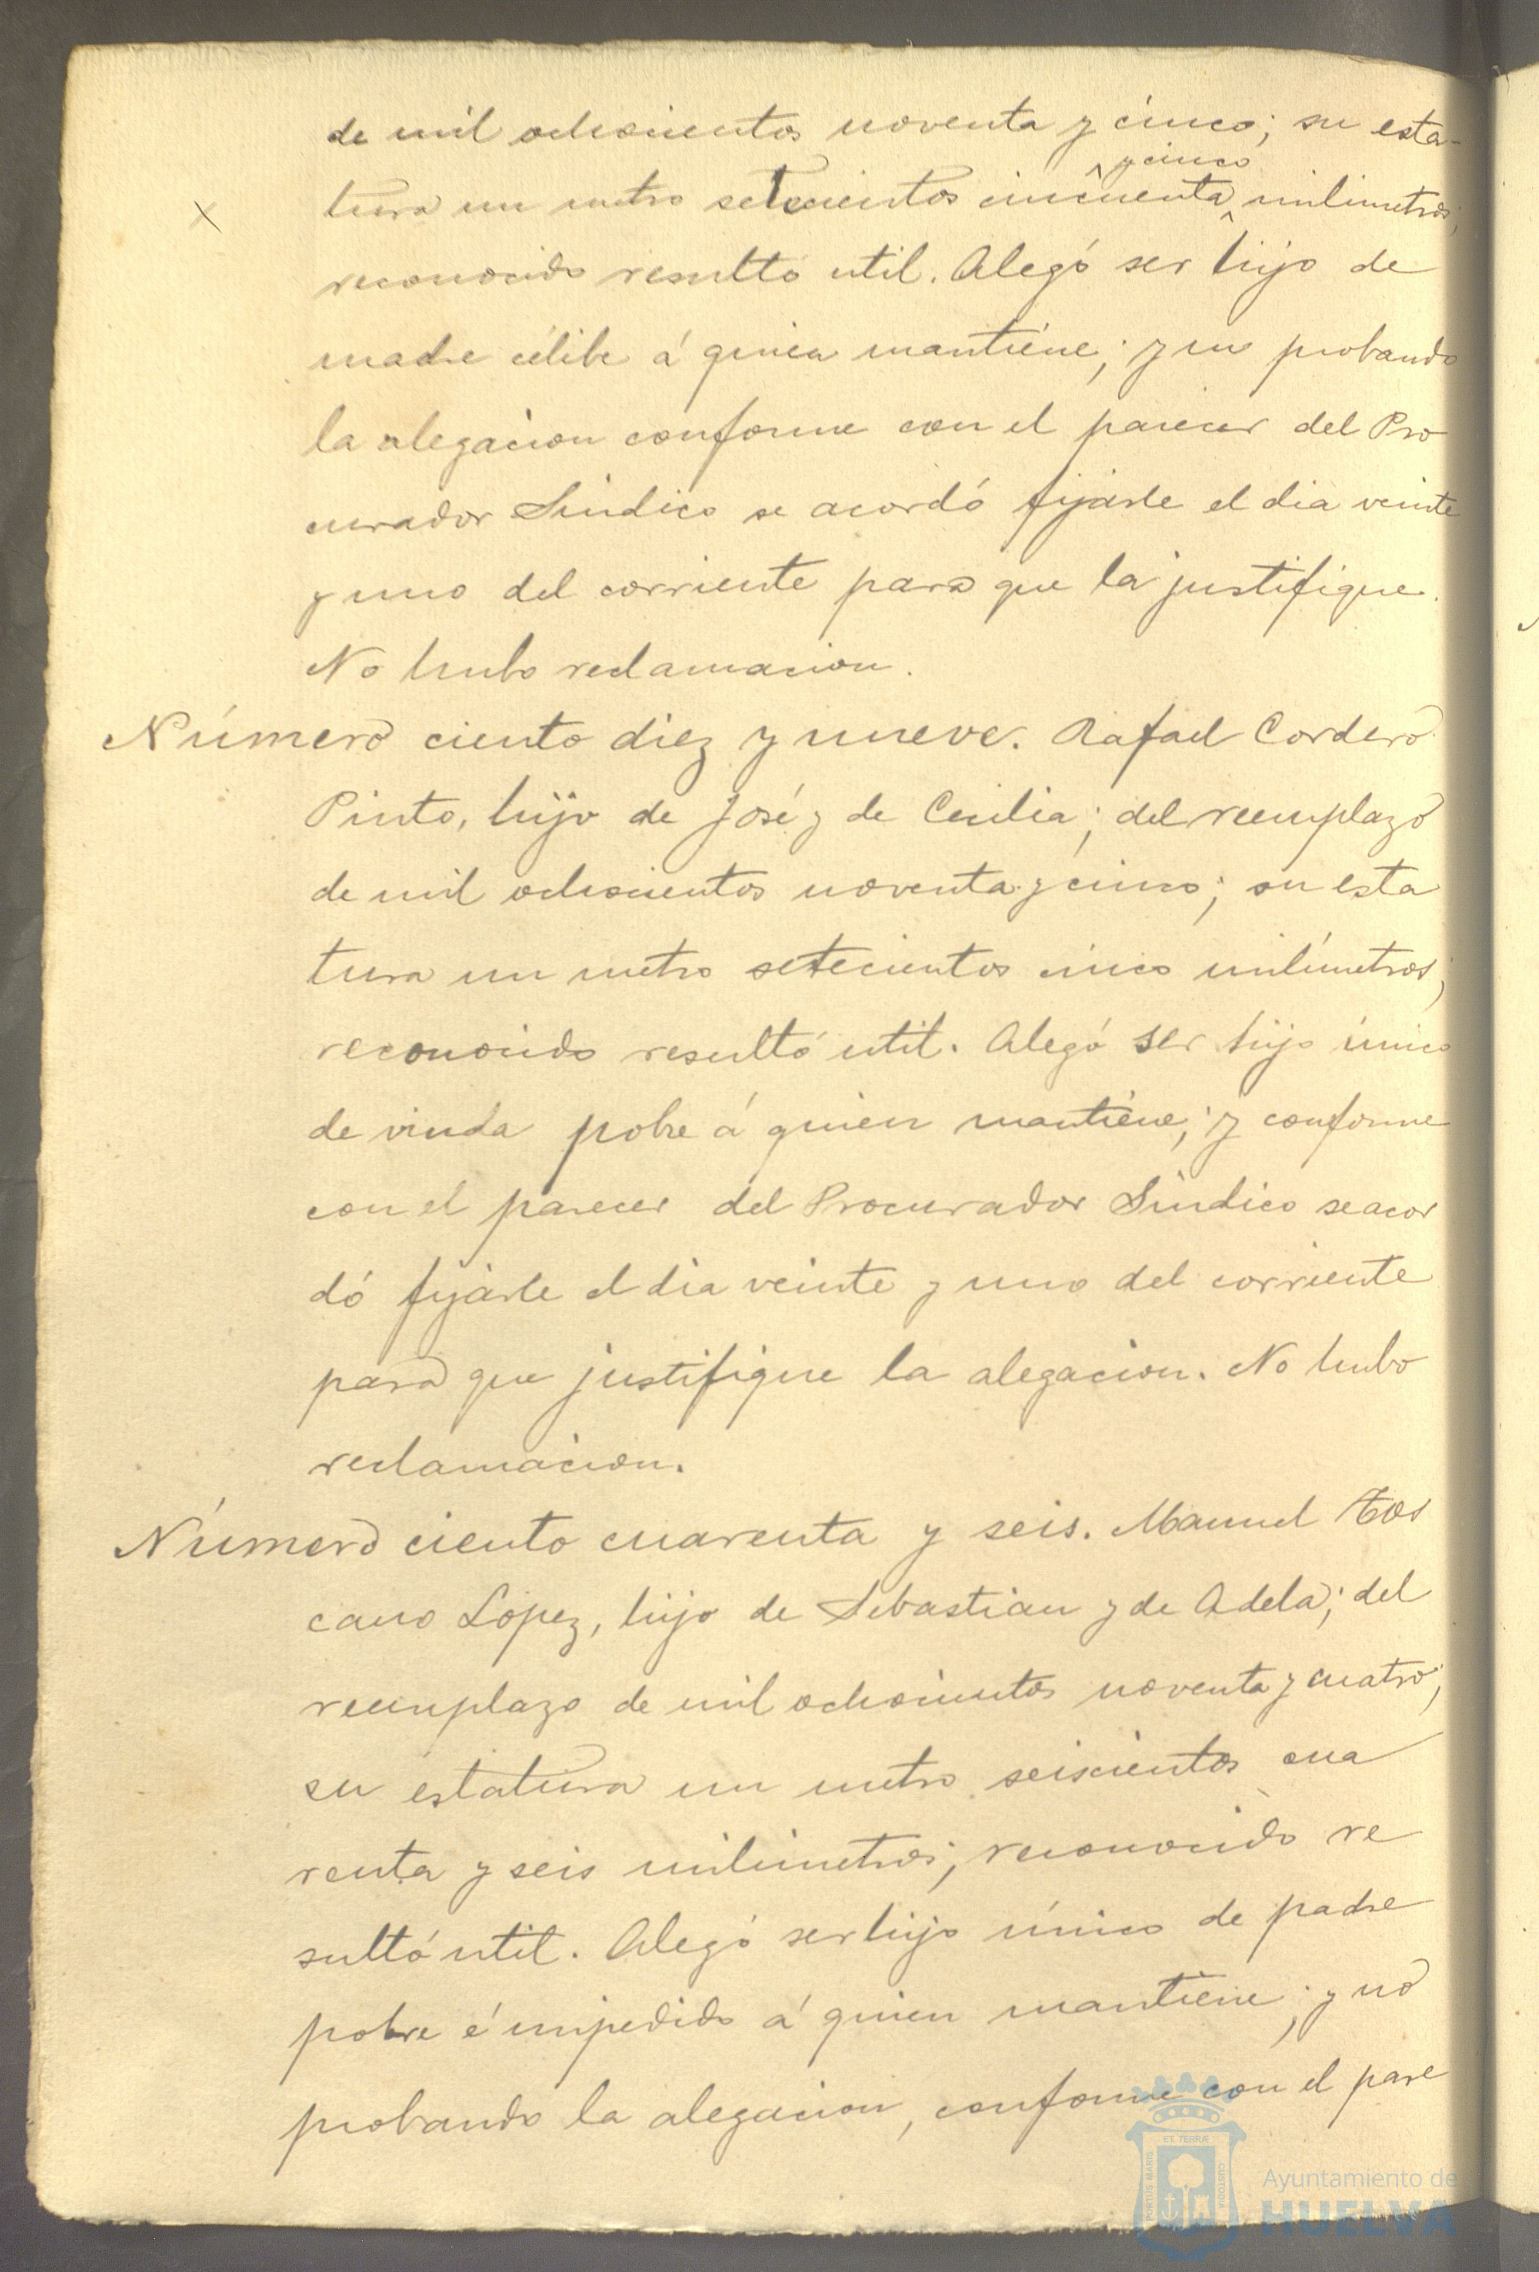 de mil ochocientos noventa y cinco; su esta-
y cinco
tura un metro setecientos cincuenta milimetros;
reconocido resultó util. Alegó ser hijo de
madre célibe á quien mantiene; y no probando
la alegacion conforme con el parecer del Pro
curador Sindico se acordó fijarle el dia veinte
y uno del corriente para que la justifique.
No hubo reclamacion.
Número ciento diez y nueve. Rafael Cordero
Pinto, hijo de José y de Cecilia; del reemplazo
de mil ochocientos noventa y cinco; su esta
tura un metro setecientos cinco milímetros;
reconocido resultó util. Alegó ser hijo único
de viuda pobre á quien mantiene; y conforme
con el parecer del Procurador Sindico se acor
dó fijarle el dia veinte y uno del corriente
para que justifique la alegacion. No hubo
reclamacion.
Número ciento cuarenta y seis. Manuel Tos
cano Lopez, hijo de Sebastian y de Adela; del
reemplazo de mil ochocientos noventa y cuatro;
su estatura un metro seiscientos cua
renta y seis milimetros; reconocido re
sultó util. Alegó ser hijo único de padre
pobre é impedido á quien mantiene; y no
probando la alegacion, conforme con el pare
ET TERRÆ
PORTUS MARIS
CUSTODIA
Ayuntamiento de
HUELVA